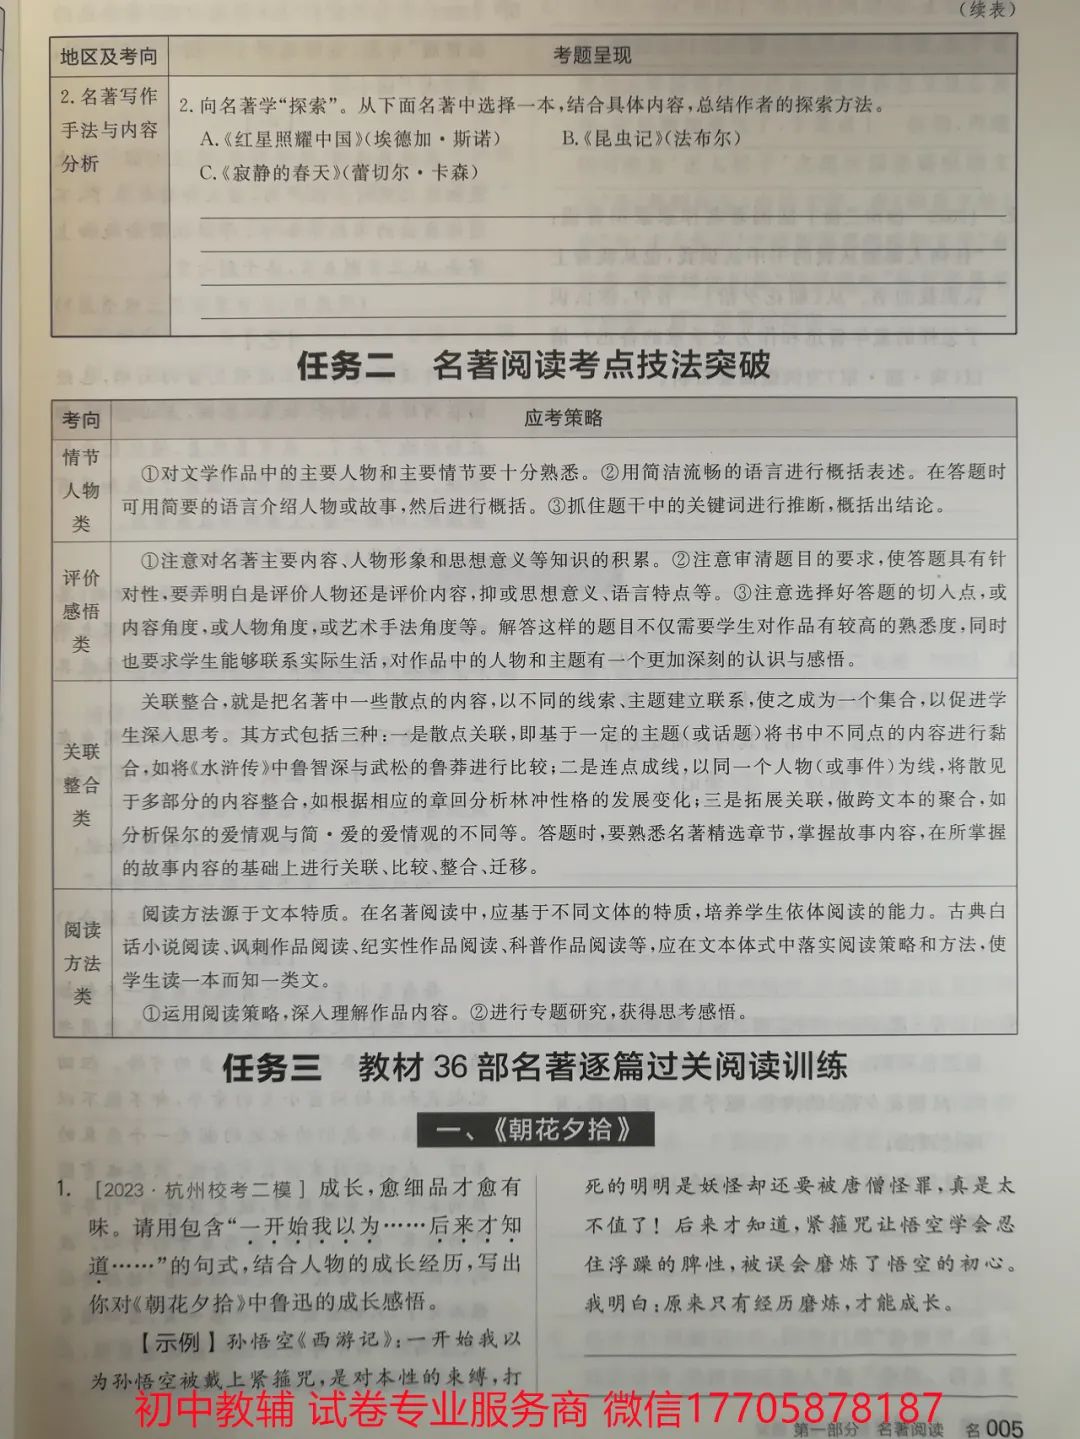 （续表）
地区及考向
考题呈现
2. 名著写作
手法与内容
分析
2. 向名著学“探索”。从下面名著中选择一本，结合具体内容，总结作者的探索方法。
A.《红星照耀中国》（埃德加·斯诺） B.《昆虫记》（法布尔）
C.《寂静的春天》（蕾切尔·卡森）
任务二 名著阅读考点技法突破
考向
应考策略
情节
人物
类
①对文学作品中的主要人物和主要情节要十分熟悉。②用简洁流畅的语言进行概括表述。在答题时
可用简要的语言介绍人物或故事，然后进行概括。③抓住题干中的关键词进行推断，概括出结论。
评价
感悟
类
①注意对名著主要内容、人物形象和思想意义等知识的积累。②注意审清题目的要求，使答题具有针
对性，要弄明白是评价人物还是评价内容，抑或思想意义、语言特点等。③注意选择好答题的切入点，或
内容角度，或人物角度，或艺术手法角度等。解答这样的题目不仅需要学生对作品有较高的熟悉度，同时
也要求学生能够联系实际生活，对作品中的人物和主题有一个更加深刻的认识与感悟。
关联
整合
类
关联整合，就是把名著中一些散点的内容，以不同的线索、主题建立联系，使之成为一个集合，以促进学
生深入思考。其方式包括三种：一是散点关联，即基于一定的主题（或话题）将书中不同点的内容进行黏
合，如将《水浒传》中鲁智深与武松的鲁莽进行比较；二是连点成线，以同一个人物（或事件）为线，将散见
于多部分的内容整合，如根据相应的章回分析林冲性格的发展变化；三是拓展关联，做跨文本的聚合，如
分析保尔的爱情观与简·爱的爱情观的不同等。答题时，要熟悉名著精选章节，掌握故事内容，在所掌握
的故事内容的基础上进行关联、比较、整合、迁移。
阅读
方法
类
阅读方法源于文本特质。在名著阅读中，应基于不同文体的特质，培养学生依体阅读的能力。古典白
话小说阅读、讽刺作品阅读、纪实性作品阅读、科普作品阅读等，应在文本体式中落实阅读策略和方法，使
学生读一本而知一类文。
①运用阅读策略，深入理解作品内容。②进行专题研究，获得思考感悟。
任务三 教材 36 部名著逐篇过关阅读训练
一、《朝花夕拾》
1. [2023·杭州校考二模] 成长，愈细品才愈有
味。请用包含“一开始我以为……后来才知
道……”的句式，结合人物的成长经历，写出
你对《朝花夕拾》中鲁迅的成长感悟。
【示例】孙悟空《西游记》：一开始我以
为孙悟空被戴上紧箍咒，是对本性的束缚，打
死的明明是妖怪却还要被唐僧怪罪，真是太
不值了！后来才知道，紧箍咒让悟空学会忍
住浮躁的脾性，被误会磨炼了悟空的初心。
我明白：原来只有经历磨炼，才能成长。
初中教辅 试卷专业服务商 微信17705878187
第一部分 名著阅读 名 005